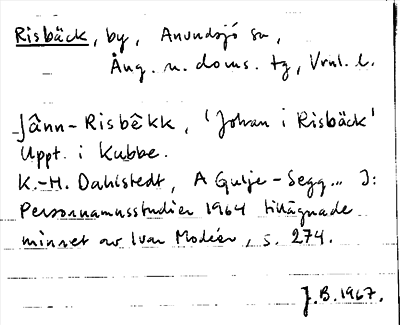 Risbäck, by, Anundsjö sn,
Ång. n. doms. tg, Vrnl. l.
Jânn-Risbêkk, 'Johan i Risbäck'
Uppt. i Kubbe.
K.-H. Dahlstedt, A Gulje-Segg... I:
Personnamnsstudier 1964 tillägnade
minnet av Ivar Modéer, s. 274.
J.B. 1967.